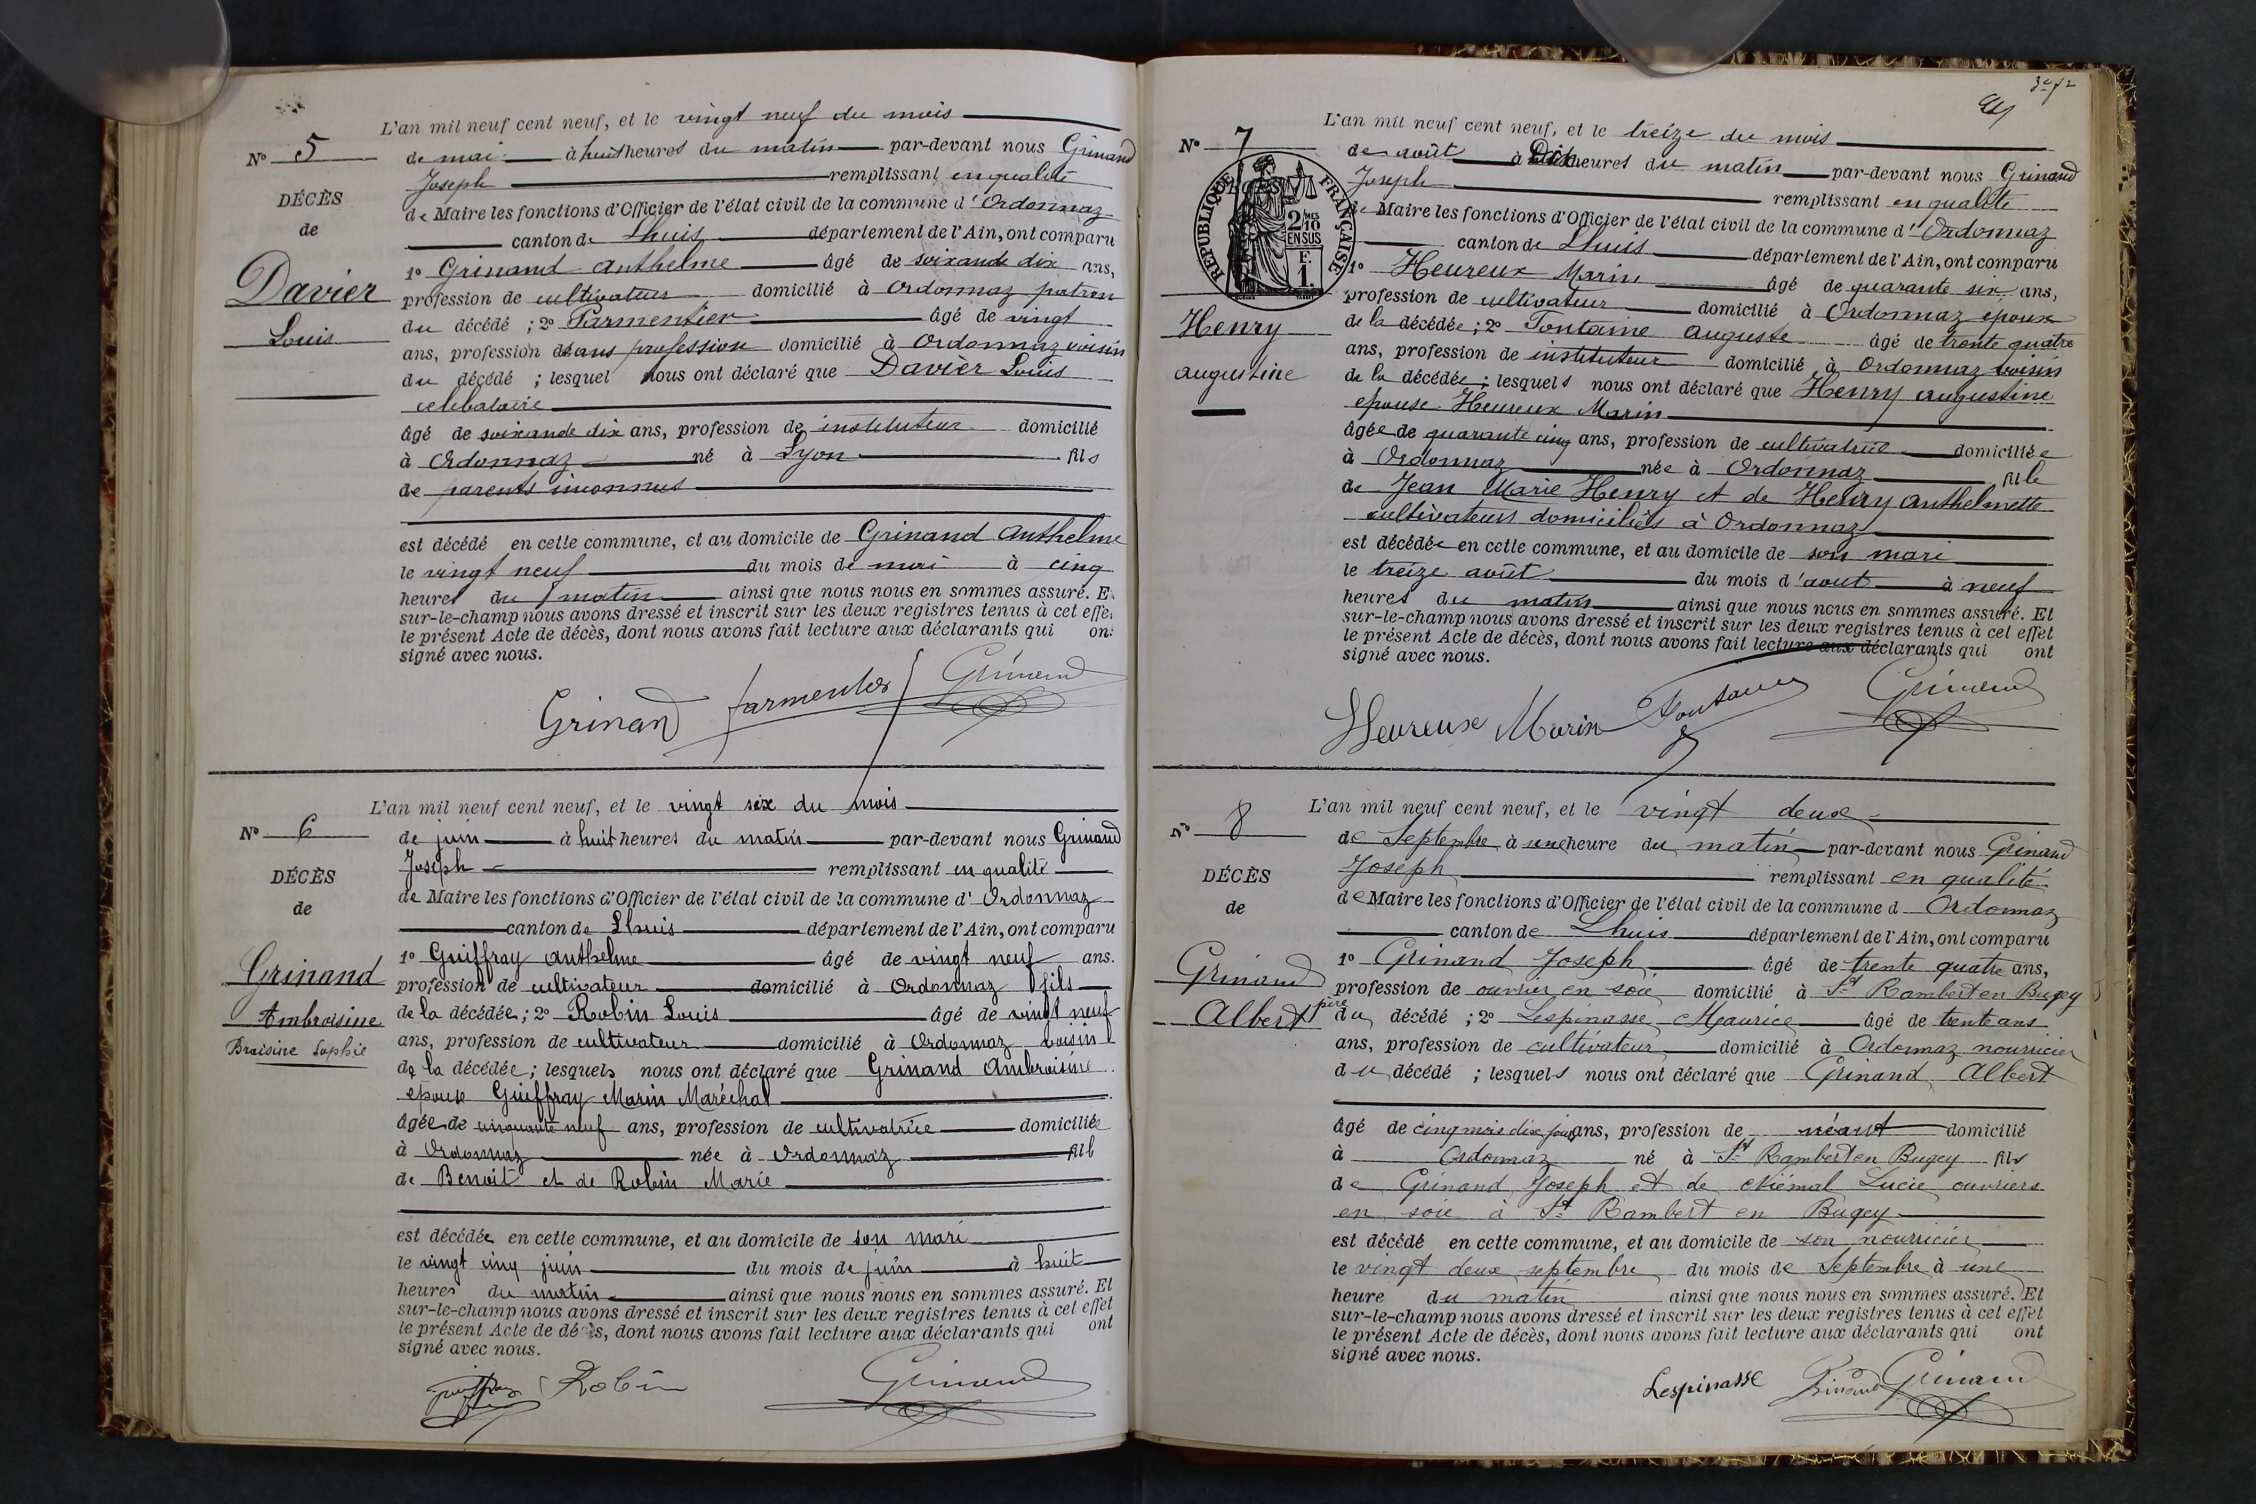 L'an mil neuf cent neuf, et le vingt neuf du mois
N° 5
de mai à huit heures du matin par-devant nous Grinand
Joseph remplissant en qualité
DÉCÈS
de Maire les fonctions d'Officier de l'état civil de la commune d'Ordonnaz
de
canton de Lhuis département de l'Ain, ont comparu
1° Grinand Anthelme âgé de soixande dix ans,
Davier
profession de cultivateur domicilié à Ordonnaz patron
du décédé ; 2° Parmentier âgé de vingt
Louis
ans, profession de sans profession domicilié à Ordonnaz voisin
du décédé ; lesquel nous ont déclaré que Davier Louis
celibataire
âgé de soixande dix ans, profession de instituteur domicilié
à Ordonnaz né à Lyon fils
de parents inconnus
est décédé en cette commune, et au domicile de Grinand Anthelme
le vingt neuf du mois de mai à cinq
heures du matin ainsi que nous nous en sommes assuré. E
sur-le-champ nous avons dressé et inscrit sur les deux registres tenus à cet effe
le présent Acte de décès, dont nous avons fait lecture aux déclarants qui on
signé avec nous.
Grinand Parmentier Grinand
L'an mil neuf cent neuf, et le vingt six du mois
N° 6
de juin à huit heures du matin par-devant nous Grinand
Joseph remplissant en qualité
DÉCÈS
de Maire les fonctions d'Officier de l'état civil de la commune d'Ordonnaz
de
canton de Lhuis département de l'Ain, ont comparu
1° Guiffray Anthelme âgé de vingt neuf ans.
Grinand
profession de cultivateur domicilié à Ordonnaz fils
de la décédée ; 2° Robin Louis âgé de vingt neuf
Ambroisine
ans, profession de cultivateur domicilié à Ordonnaz voisin
Braisine Sophie
de la décédée ; lesquels nous ont déclaré que Grinand Ambroisine
épouse Guiffray Marin Maréchal
âgée de cinquante neuf ans, profession de cultivatrice domiciliée
à Ordonnaz née à Ordonnaz fille
de Benoit et de Robin Marie
est décédée en cette commune, et au domicile de son mari
le vingt cinq juin du mois de juin à huit
heures du matin ainsi que nous nous en sommes assuré. Et
sur-le-champ nous avons dressé et inscrit sur les deux registres tenus à cet effet
le présent Acte de décès, dont nous avons fait lecture aux déclarants qui ont
signé avec nous.
Robin Grinand
3e f2
L'an mil neuf cent neuf, et le treize du mois
N° 7
de août à Dix heures du matin par-devant nous Grinand
Joseph remplissant en qualité
RÉPUBLIQUE FRANÇAISE
2/10 EN SUS
F. 1.
de Maire les fonctions d'Officier de l'état civil de la commune d'Ordonnaz
canton de Lhuis département de l'Ain, ont comparu
1° Heureux Marin âgé de quarante six ans,
profession de cultivateur domicilié à Ordonnaz epoux
Henry
de la décédée ; 2° Fontaine Auguste âgé de trente quatre
ans, profession de instituteur domicilié à Ordonnaz voisin
augustine
de la décédée ; lesquels nous ont déclaré que Henry augustine
epouse Heureux Marin
âgée de quarante cinq ans, profession de cultivatrice domiciliée
à Ordonnaz née à Ordonnaz fille
de Jean Marie Henry et de Henry Anthelmette
cultivateurs domiciliés à Ordonnaz
est décédée en cette commune, et au domicile de son mari
le treize août du mois d'aout à neuf
heures du matin ainsi que nous nous en sommes assuré. Et
sur-le-champ nous avons dressé et inscrit sur les deux registres tenus à cet effet
le présent Acte de décès, dont nous avons fait lecture aux déclarants qui ont
signé avec nous.
Heureux Marin Fontaine Grinand
L'an mil neuf cent neuf, et le vingt deux
N° 8
de Septembre à une heure du matin par-devant nous Grinand
Joseph remplissant en qualité
DÉCÈS
de Maire les fonctions d'Officier de l'état civil de la commune d Ordonnaz
de
canton de Lhuis département de l'Ain, ont comparu
1° Grinand Joseph âgé de trente quatre ans,
Grinand
profession de ouvrier en soie domicilié à St Rambert en Bugey
père du décédé ; 2° Lespinasse Maurice âgé de trente ans
Albert
ans, profession de cultivateur domicilié à Ordonnaz nourricier
du décédé ; lesquels nous ont déclaré que Grinand Albert
âgé de cinq mois dix jours ans, profession de néant domicilié
à Ordonnaz né à St Rambert en Bugey fils
de Grinand Joseph et de Niémal Lucie ouvriers
en soie à St Rambert en Bugey
est décédé en cette commune, et au domicile de son nourricier
le vingt deux septembre du mois de Septembre à une
heure du matin ainsi que nous nous en sommes assuré. Et
sur-le-champ nous avons dressé et inscrit sur les deux registres tenus à cet effet
le présent Acte de décès, dont nous avons fait lecture aux déclarants qui ont
signé avec nous.
Lespinasse Grinand Grinand